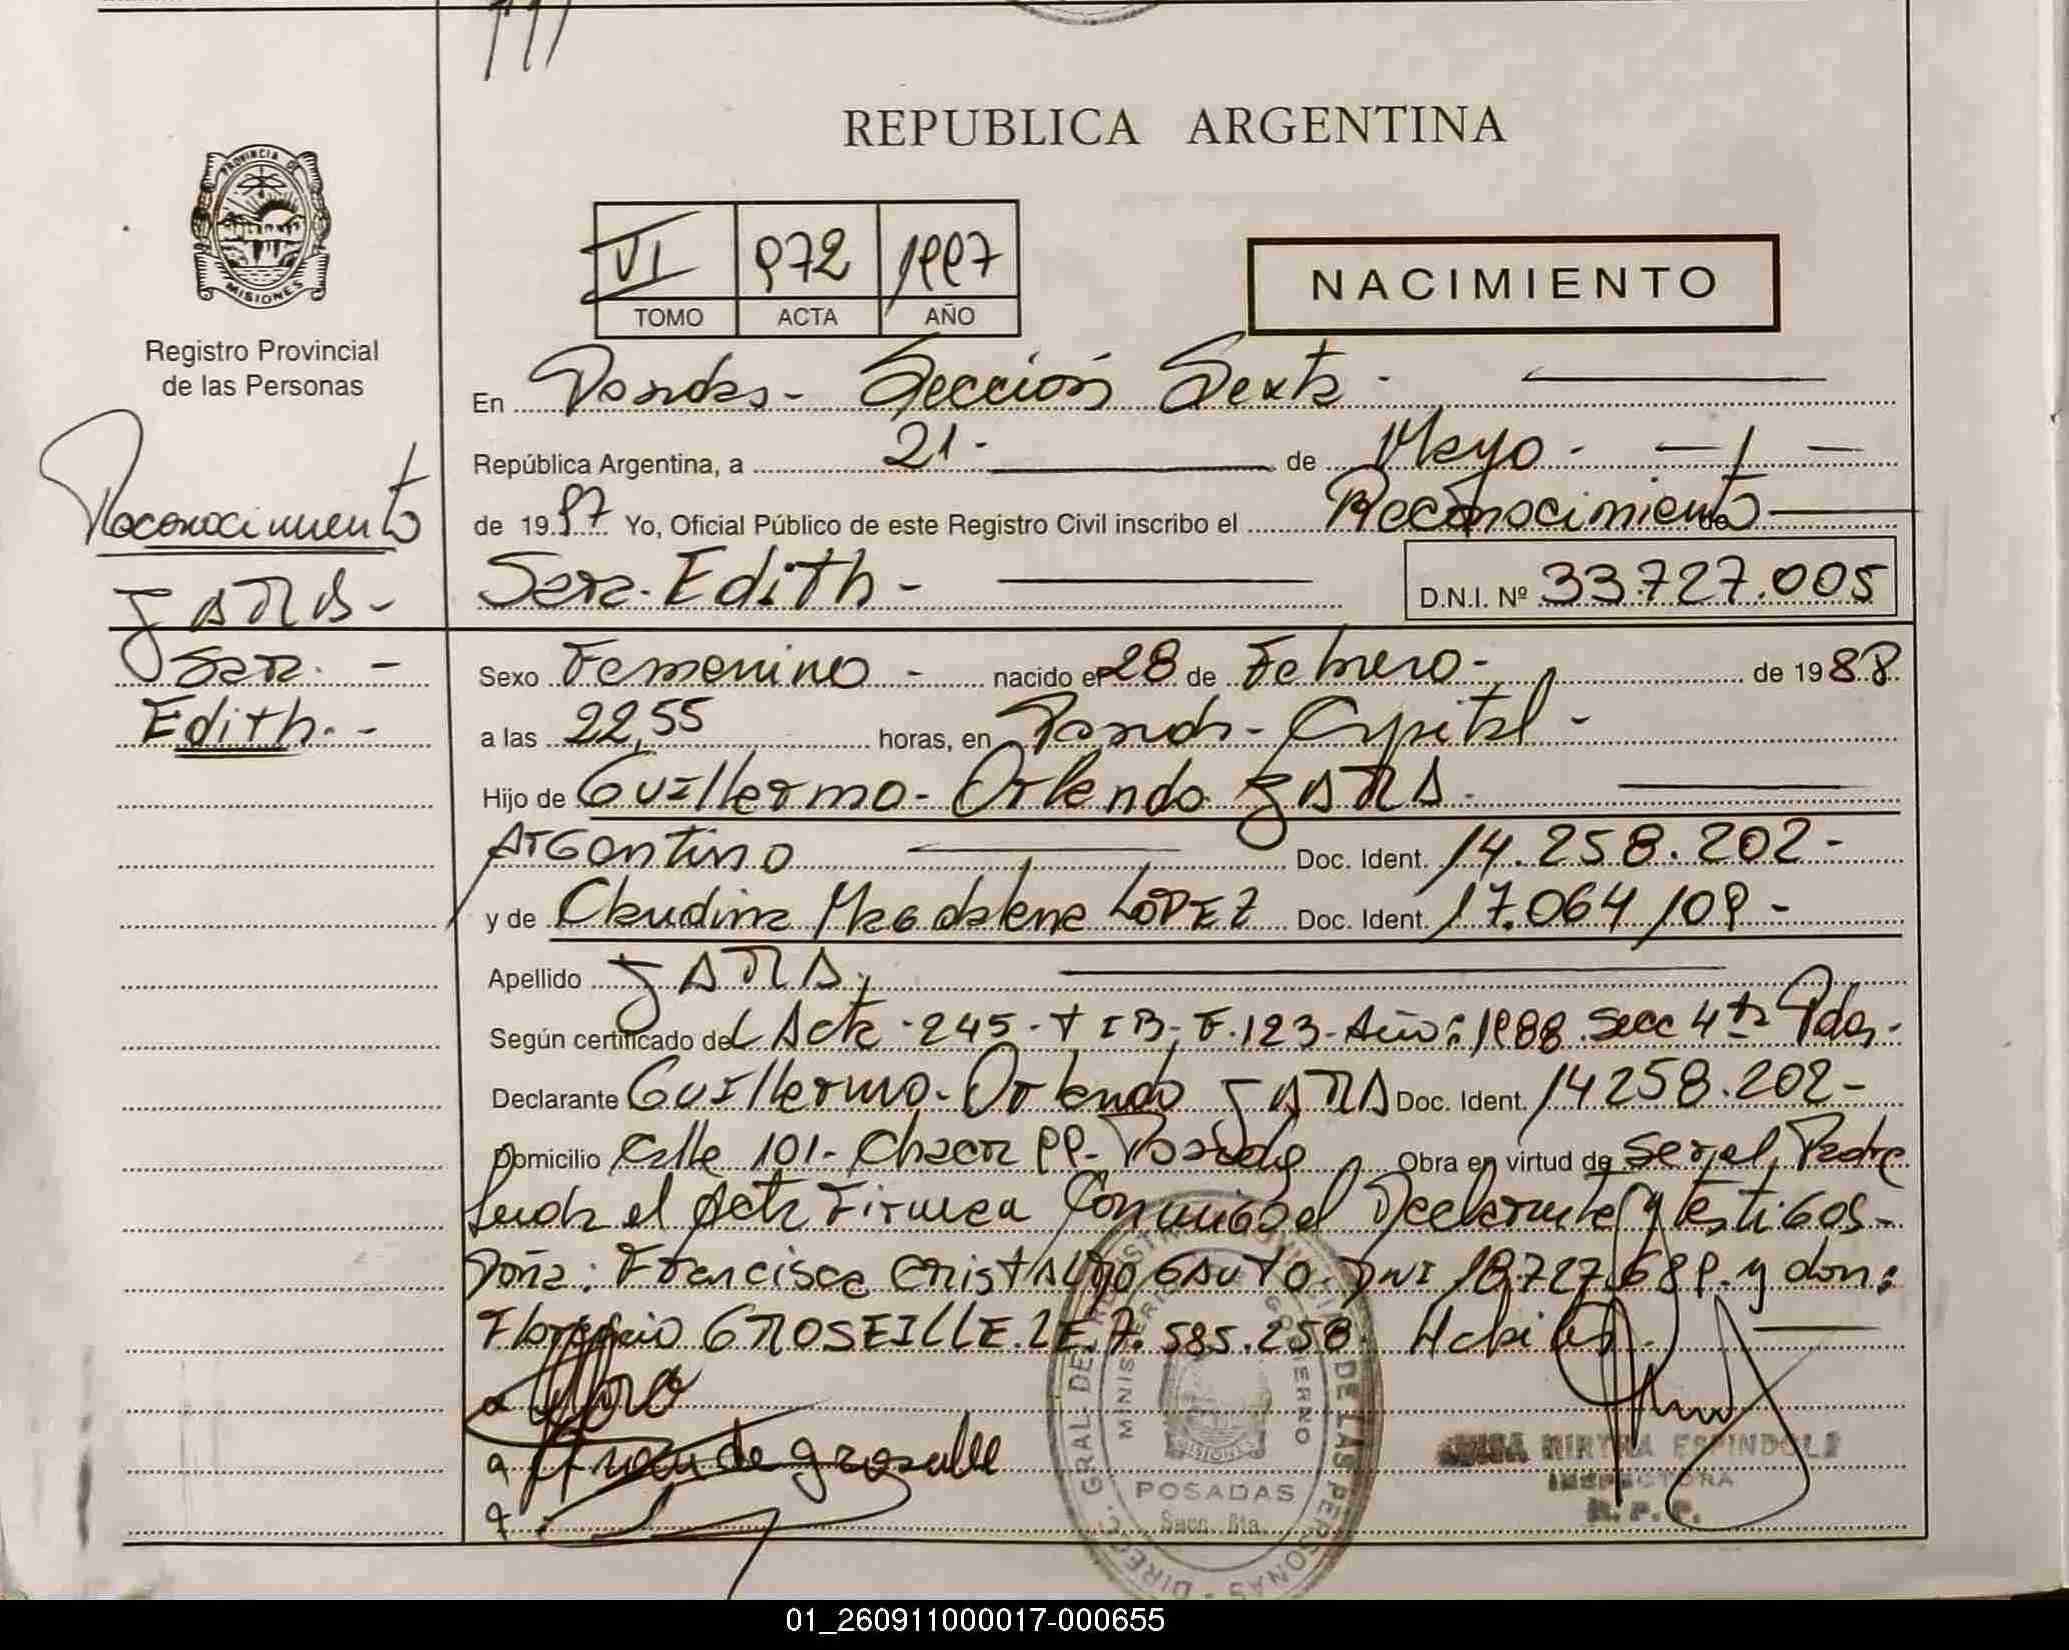 REPUBLICA ARGENTINA
PROVINCIA DE MISIONES
Registro Provincial
de las Personas
VI 972 1997
TOMO ACTA AÑO
NACIMIENTO
En Posadas - Sección Sexta -
República Argentina, a 21 - de Mayo -
de 1997 Yo, Oficial Público de este Registro Civil inscribo el Reconocimiento de
Sara Edith - D.N.I. Nº 33.727.005
Reconocimiento
JARA -
Sara -
Edith. -
Sexo Femenino - nacido el 28 de Febrero - de 1988
a las 22,55 horas, en Posadas - Capital -
Hijo de Guillermo - Orlando JARA -
Argentino Doc. Ident. 14.258.202 -
y de Claudina Magdalena LOPEZ Doc. Ident. 17.064.109 -
Apellido JARA,
Según certificado del Acta - 245 - T I B - F. 123 - Año: 1988. Secc 4ta Pdas, -
Declarante Guillermo - Orlando JARA Doc. Ident. 14258.202 -
Domicilio Calle 101 - Chacra 99 - Posadas Obra en virtud de Ser el Padre
Leida el Acta Firman Conmigo el Declarante y testigos -
Doña: Francisca CRISTALDO GAUTO. DNI 18.727.689. y don:
GROSEILLE. L E. 7.585.258. Hábiles.
a
a de groselle
a
DIREC. GRAL. DEL REGISTRO PROVINCIAL DE LAS PERSONAS
MINISTERIO GOBIERNO
MISIONES
POSADAS
Secc. 6ta.
MIRTHA ESPINDOLA
INSPECTORA
R. P. P.
01_260911000017-000655